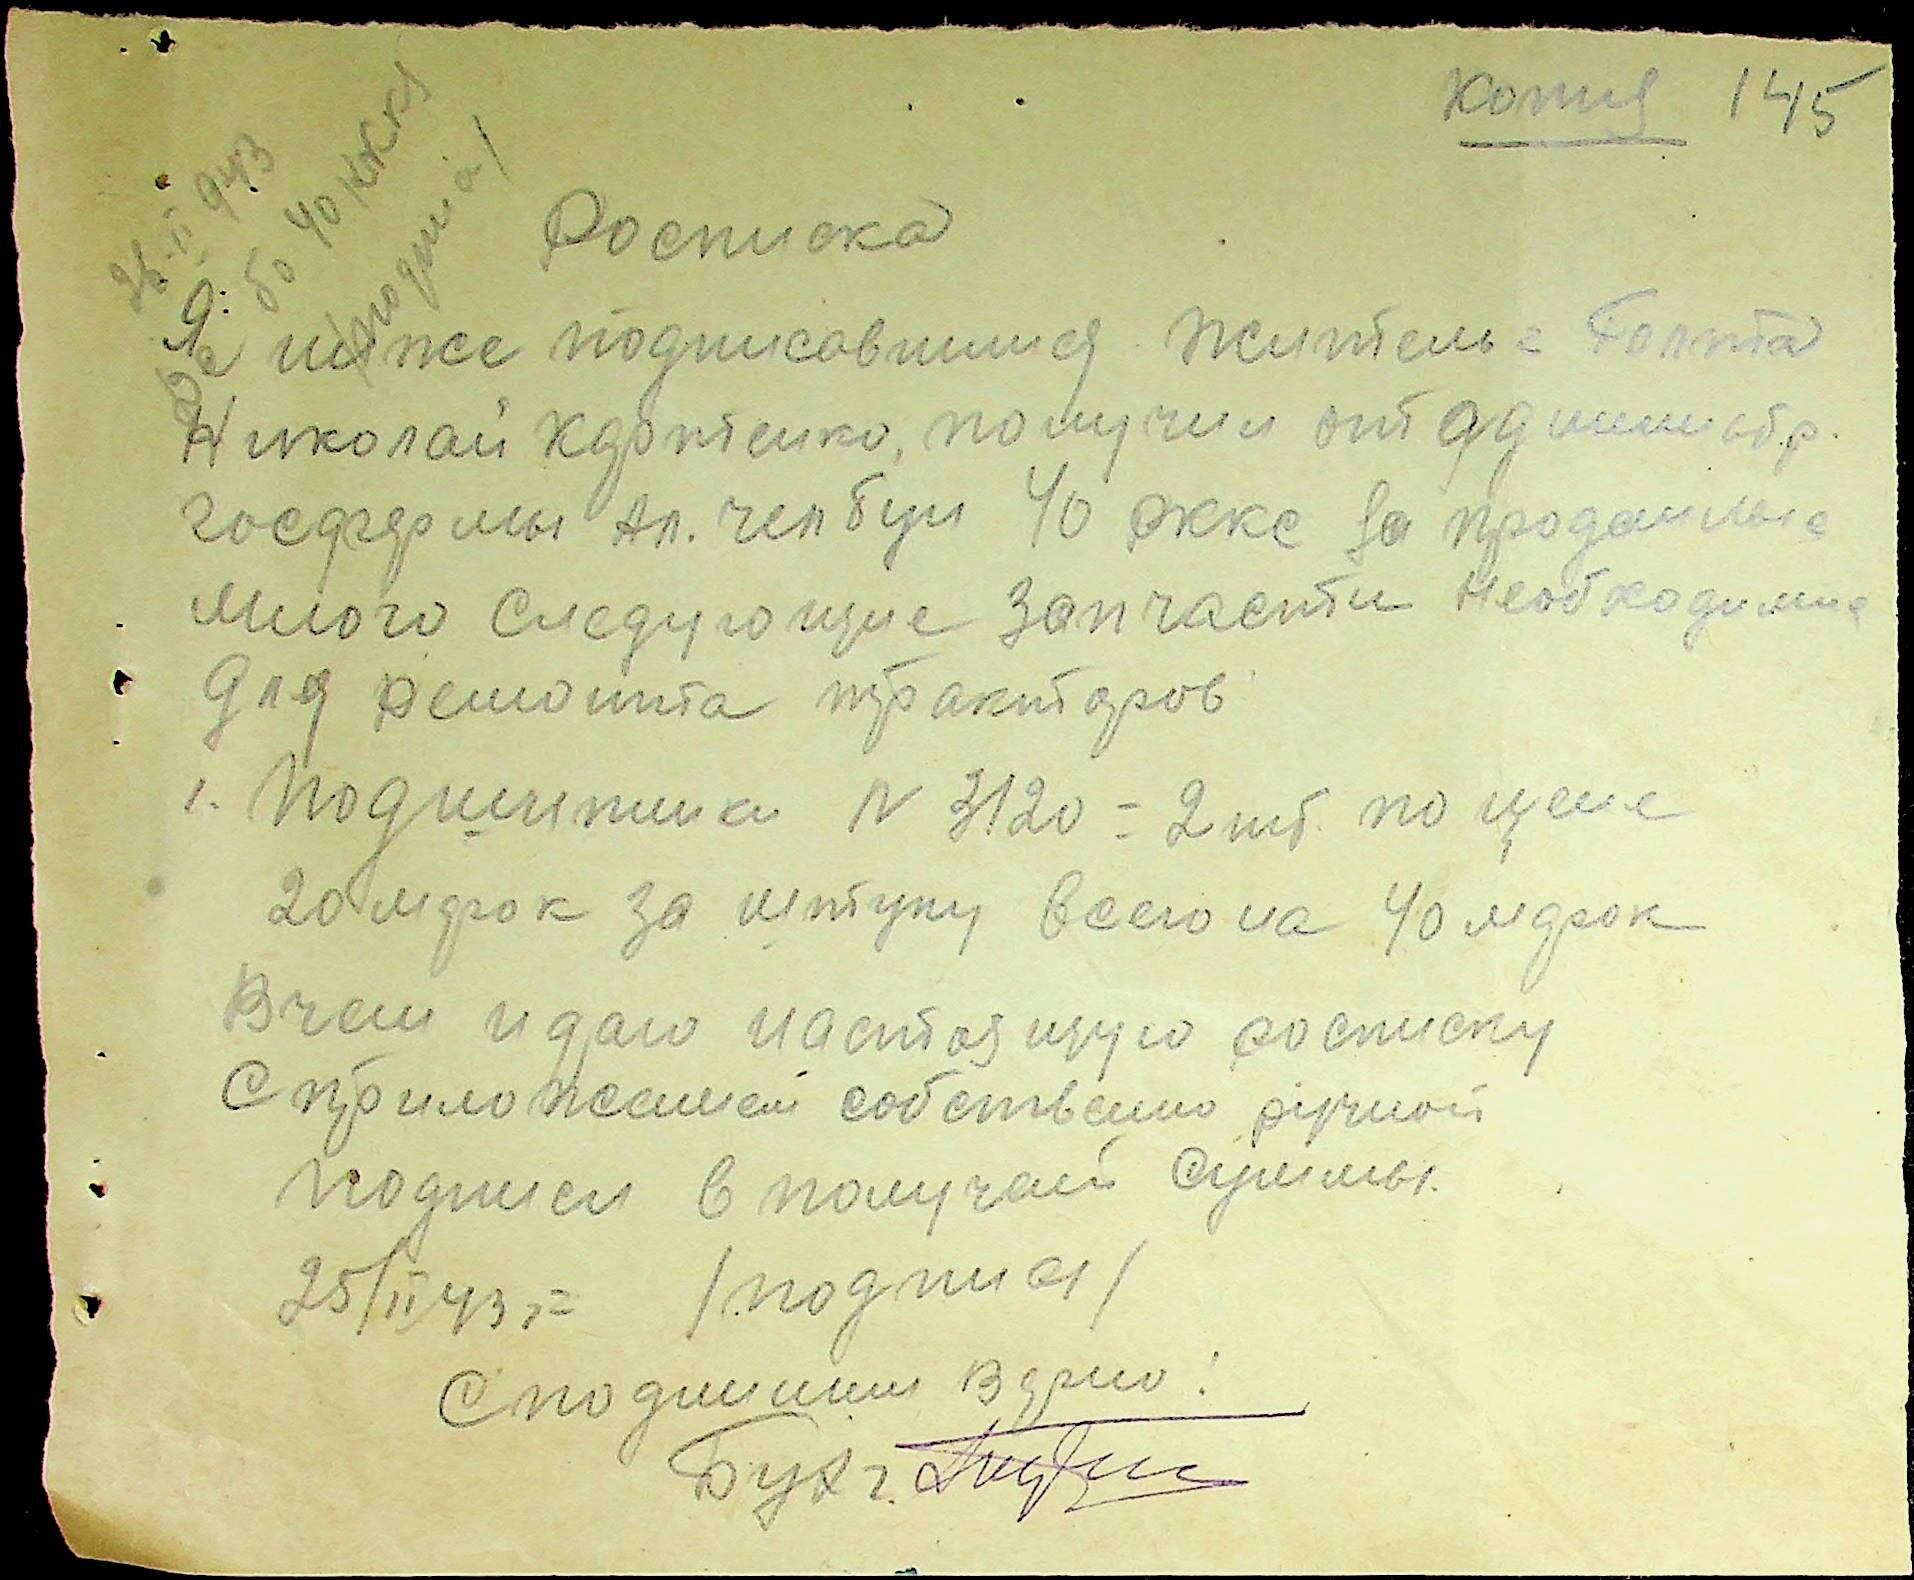 Копия 145
26-II 943
40 РККС
Росписка
Я ниже подписавшийся житель с Голта
Николай Кдоктенко, получил от администр.
госфермы Ал. челбун 40 рккс за проданые
много следующие запчасти необходимые
для ремонта тракторов
1. Подшипники N 3120 = 2 шт. по цене
20 марок за штуку всего на 40 марок
В чем и даю настоящую росписку
с приложением собственно ручной
подписи в получении суммы.
25/II 43 г.= /подпись/
С подлинным верно!
Бухг.